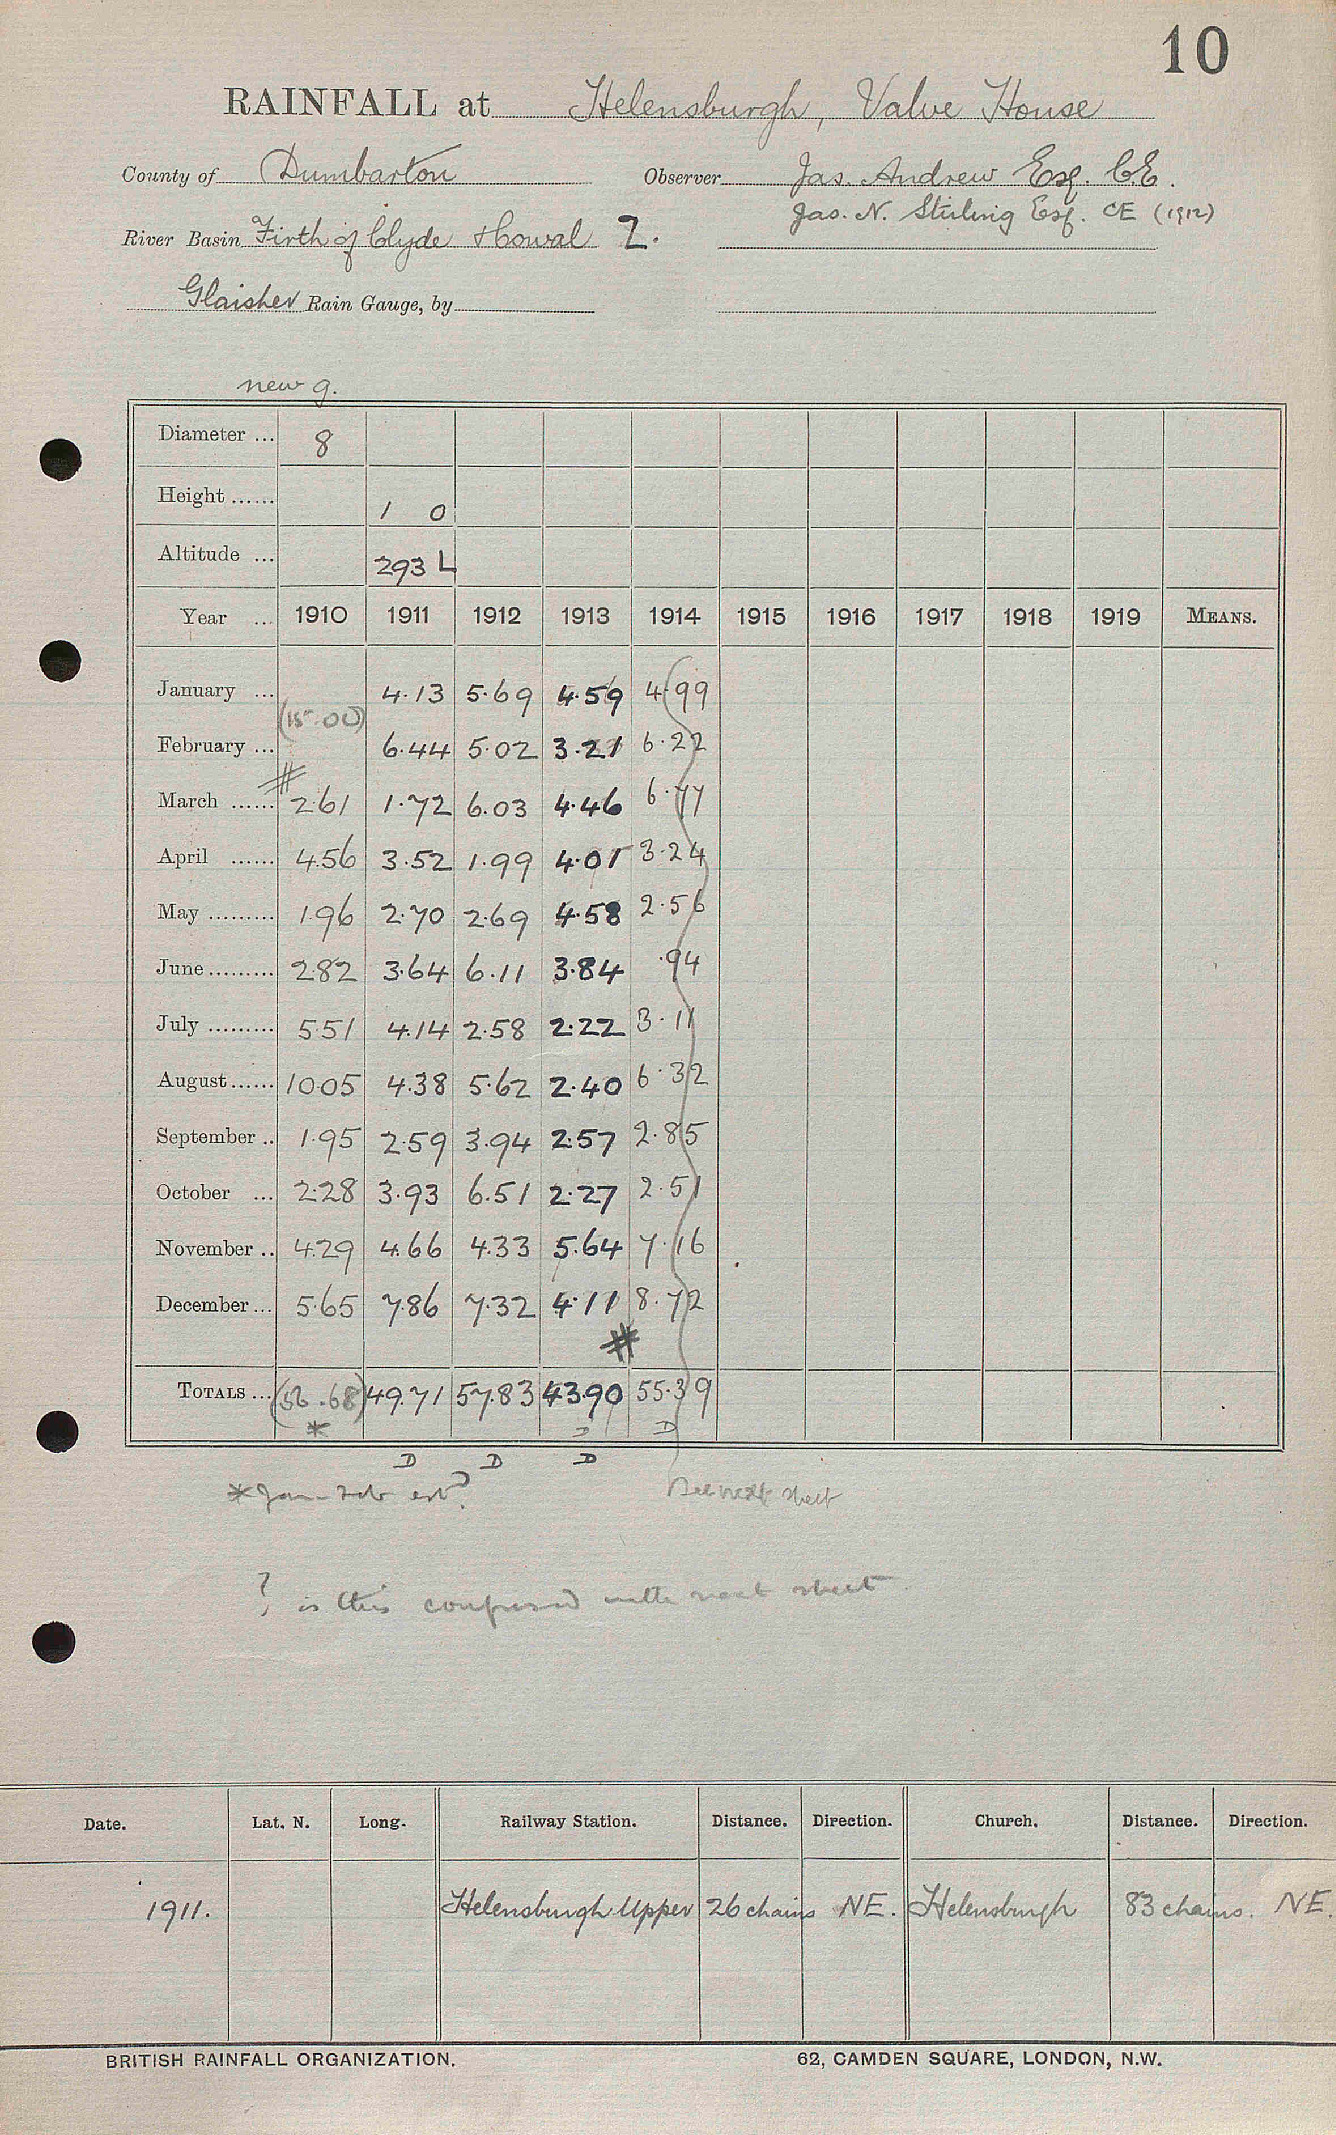 10
RAINFALL at Helensburgh, Valve House
County of Dumbarton Observer Jas. Andrew Esq. C.E.
Jas. N. Stirling Esq. CE (1912)
River Basin Firth of Clyde & Cowal 2.
Glaisher Rain Gauge, by
new g.
Diameter ... 8
Height ...... 1 0
Altitude ... 293 L
Year ... 1910 1911 1912 1913 1914 1915 1916 1917 1918 1919 MEANS.
January ... 4.13 5.69 4.59 4.99
(15.00)
February ... 6.44 5.02 3.21 6.22
#
March ...... 2.61 1.72 6.03 4.46 6.77
April ...... 4.56 3.52 1.99 4.01 3.24
May ......... 1.96 2.70 2.69 4.58 2.56
June ......... 2.82 3.64 6.11 3.84 .94
July ......... 5.51 4.14 2.58 2.22 3.11
August ...... 10.05 4.38 5.62 2.40 6.32
September .. 1.95 2.59 3.94 2.57 2.85
October ... 2.28 3.93 6.51 2.27 2.51
November .. 4.29 4.66 4.33 5.64 7.16
December ... 5.65 7.86 7.32 4.11 8.72
#
TOTALS ... (56.68) 49.71 57.83 43.90 55.39
* D D
D D D
* Jan-Feb est? See next sheet
? is this confused with next sheet
Date. Lat. N. Long. Railway Station. Distance. Direction. Church. Distance. Direction.
1911. Helensburgh Upper 26 chains NE. Helensburgh 83 chains. NE.
BRITISH RAINFALL ORGANIZATION. 62, CAMDEN SQUARE, LONDON, N.W.